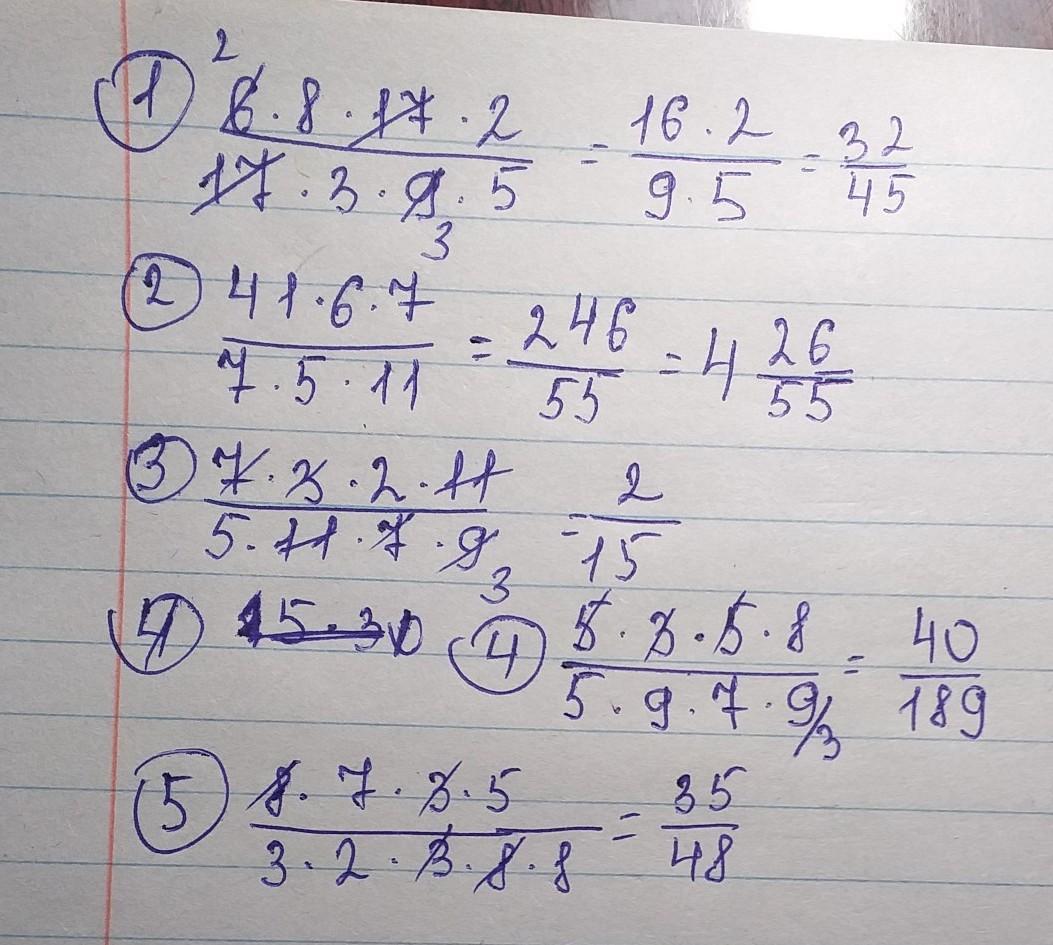 ① 2 6 · 8 · 17 · 2 / 17 · 3 · 9 3 · 5 = 16 · 2 / 9 · 5 = 32 / 45
② 41 · 6 · 7 / 7 · 5 · 11 = 246 / 55 = 4 26 / 55
③ 7 · 3 · 2 · 11 / 5 · 11 · 7 · 9 3 = 2 / 15
④ 15 · 30 ④ 5 · 3 · 5 · 8 / 5 · 9 · 7 · 9 / 3 = 40 / 189
⑤ 8 · 7 · 3 · 5 / 3 · 2 · 3 · 8 · 8 = 35 / 48